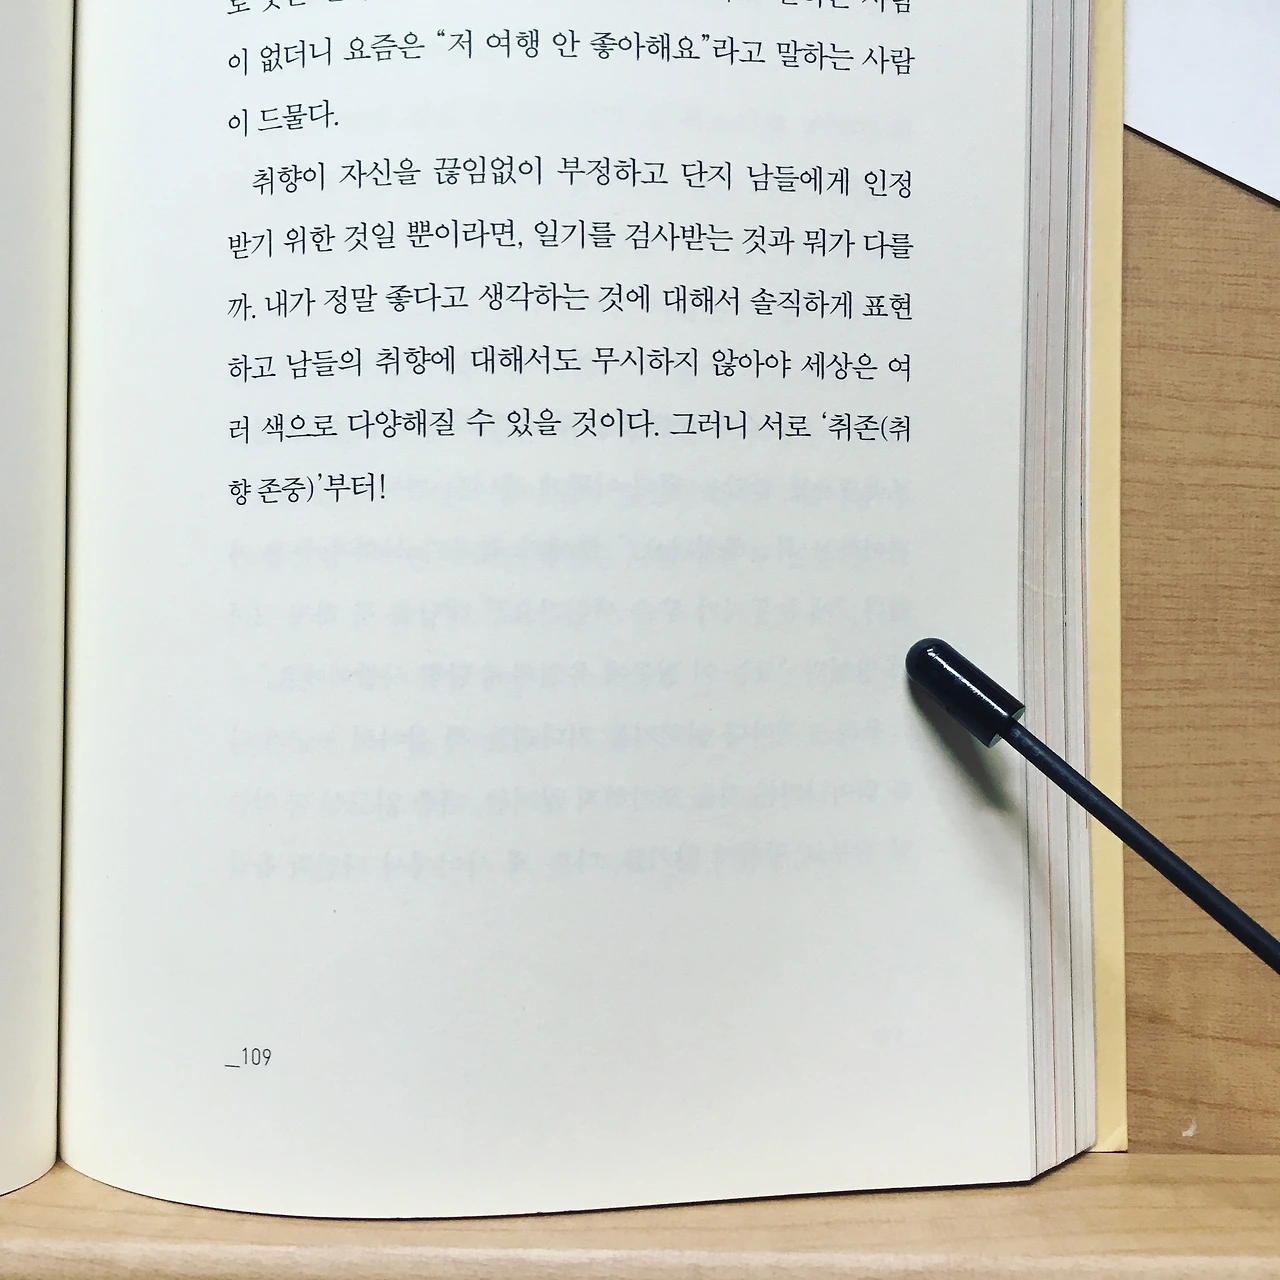 이 없더니 요즘은 “저 여행 안 좋아해요”라고 말하는 사람
이 드물다.
취향이 자신을 끊임없이 부정하고 단지 남들에게 인정
받기 위한 것일 뿐이라면, 일기를 검사받는 것과 뭐가 다를
까. 내가 정말 좋다고 생각하는 것에 대해서 솔직하게 표현
하고 남들의 취향에 대해서도 무시하지 않아야 세상은 여
러 색으로 다양해질 수 있을 것이다. 그러니 서로 ‘취존(취
향 존중)’부터!
_109